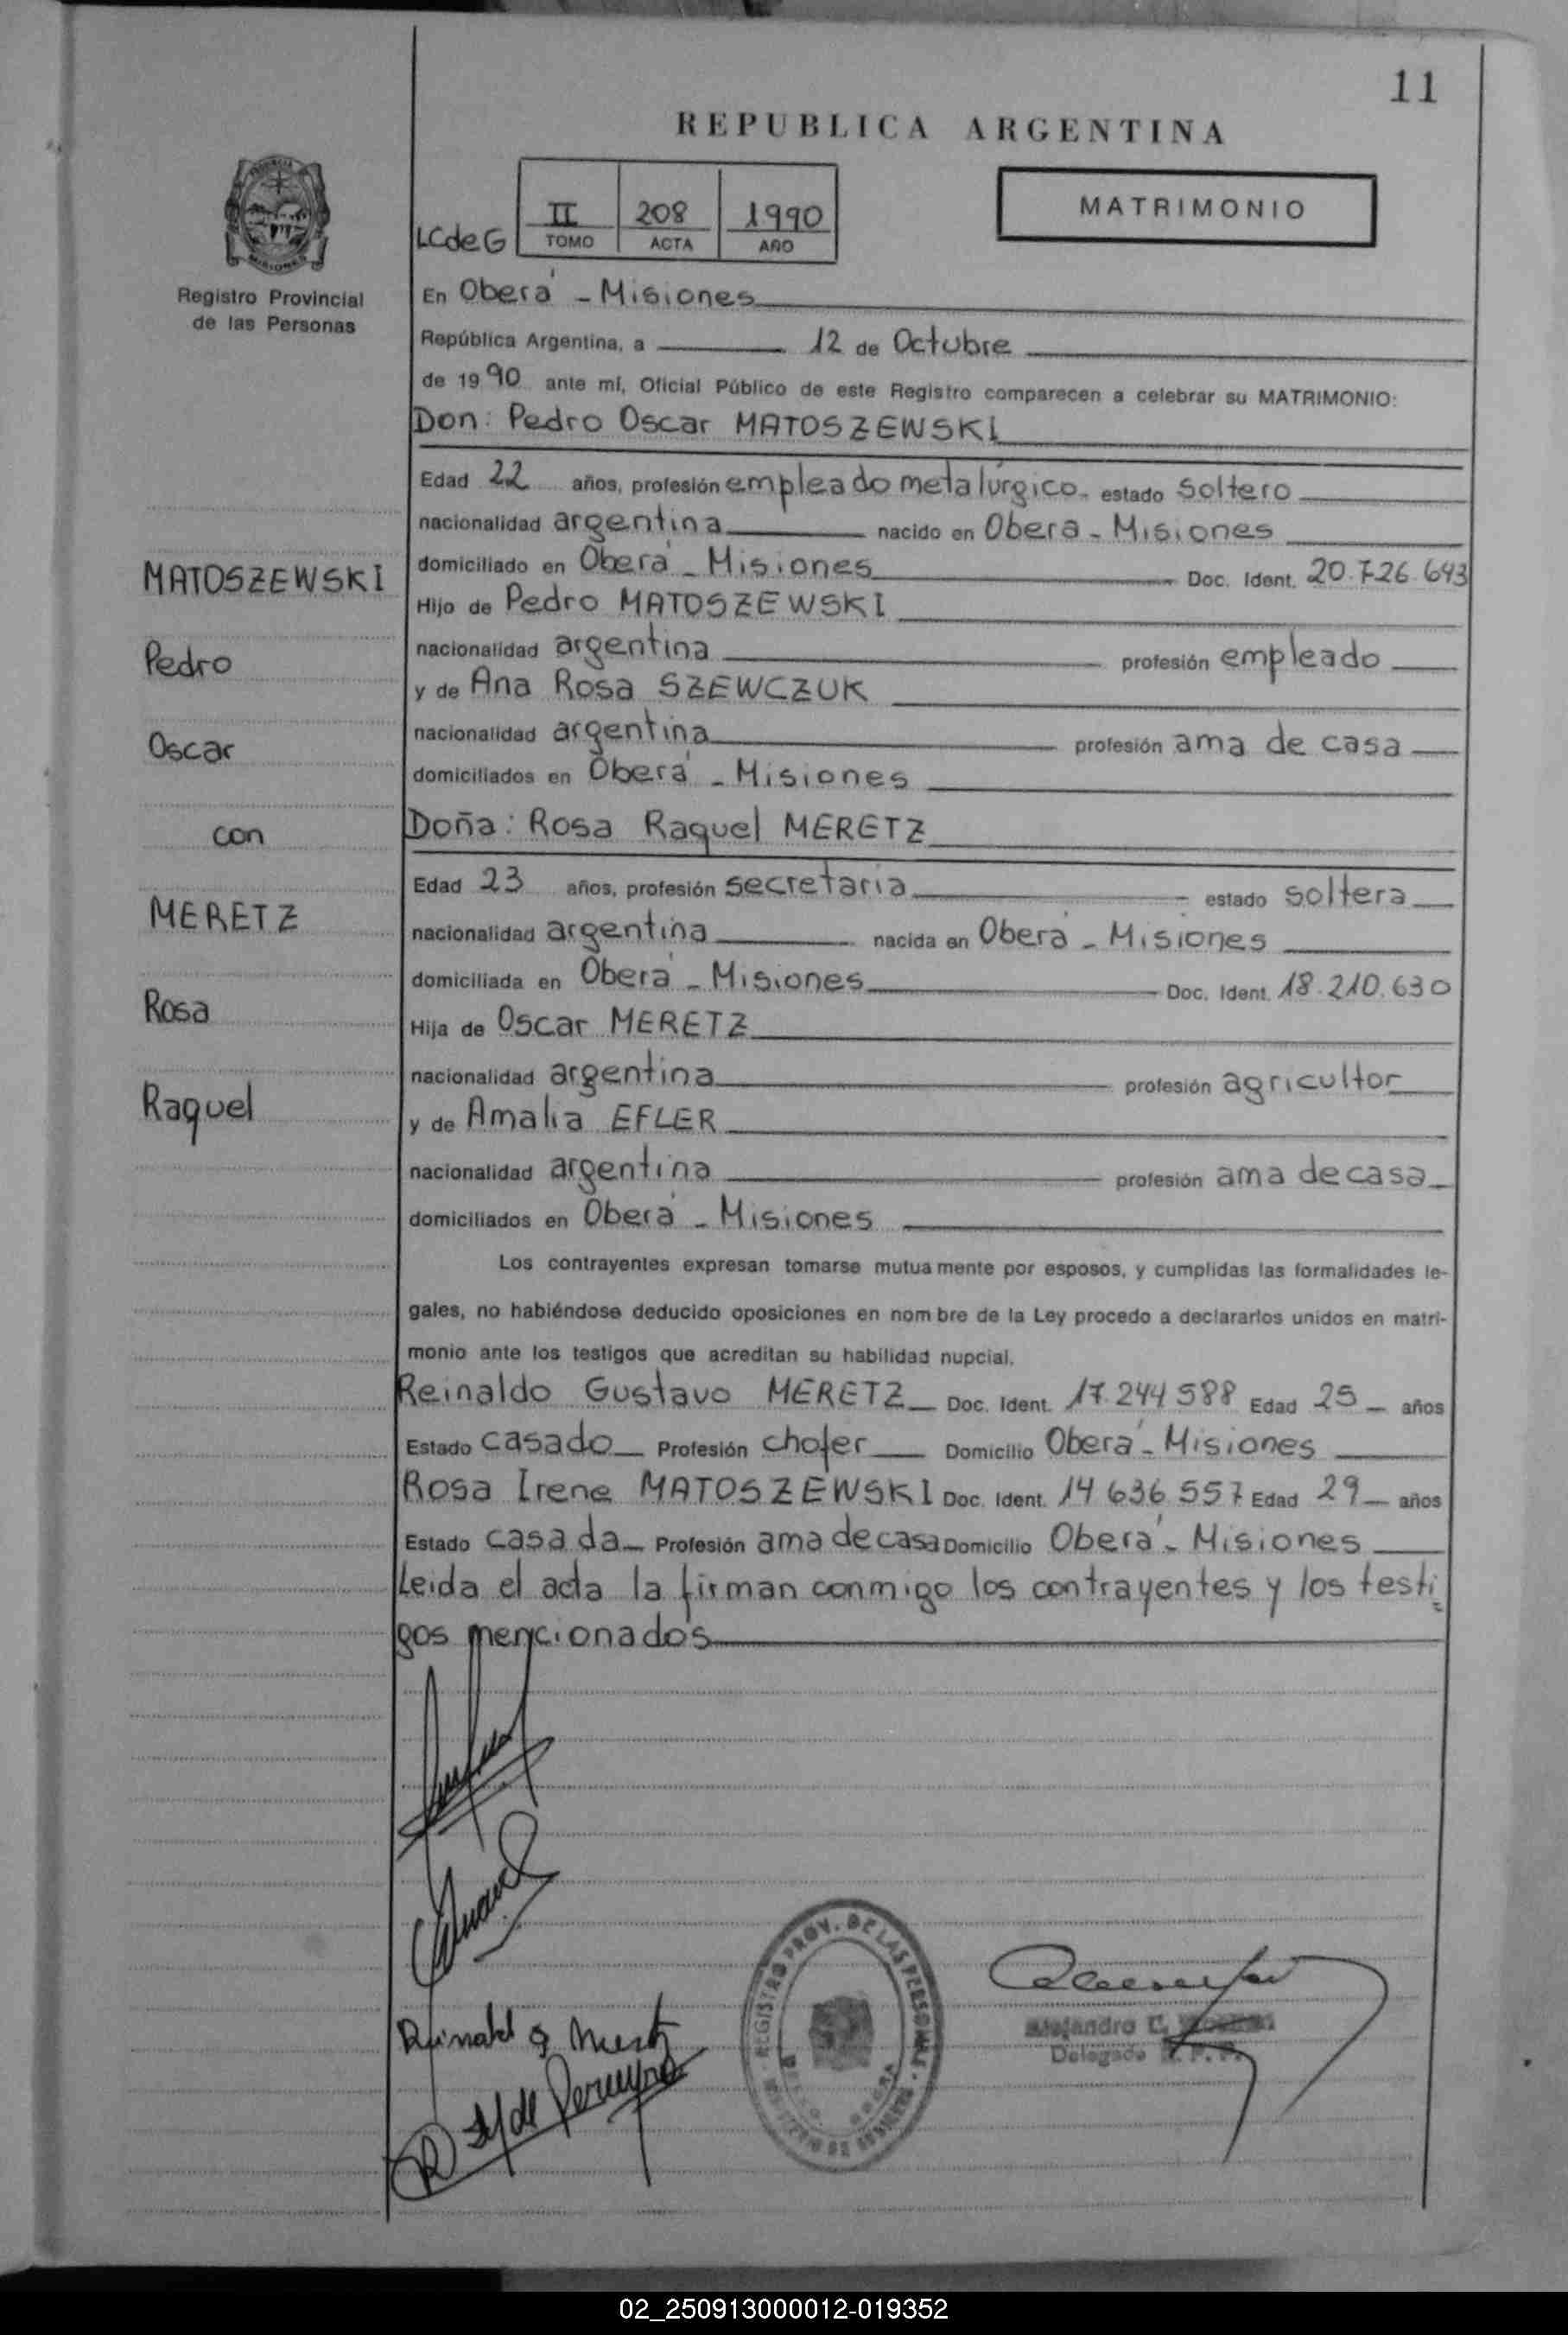 11
REPUBLICA ARGENTINA
MATRIMONIO
LCdeG
II 208 1990
TOMO ACTA AÑO
Registro Provincial
de las Personas
En Oberá - Misiones
República Argentina, a 12 de Octubre
de 1990 ante mí, Oficial Público de este Registro comparecen a celebrar su MATRIMONIO:
Don: Pedro Oscar MATOSZEWSKI
Edad 22 años, profesión empleado metalúrgico. estado soltero
nacionalidad argentina nacido en Oberá - Misiones
domiciliado en Oberá - Misiones Doc. Ident. 20.726.643
Hijo de Pedro MATOSZEWSKI
nacionalidad argentina profesión empleado
y de Ana Rosa SZEWCZUK
nacionalidad argentina profesión ama de casa
domiciliados en Oberá - Misiones
Doña: Rosa Raquel MERETZ
Edad 23 años, profesión secretaria estado soltera
nacionalidad argentina nacida en Oberá - Misiones
domiciliada en Oberá - Misiones Doc. Ident. 18.210.630
Hija de Oscar MERETZ
nacionalidad argentina profesión agricultor
y de Amalia EFLER
nacionalidad argentina profesión ama de casa
domiciliados en Oberá - Misiones
MATOSZEWSKI
Pedro
Oscar
con
MERETZ
Rosa
Raquel
Los contrayentes expresan tomarse mutuamente por esposos, y cumplidas las formalidades le-
gales, no habiéndose deducido oposiciones en nombre de la Ley procedo a declararlos unidos en matri-
monio ante los testigos que acreditan su habilidad nupcial.
Reinaldo Gustavo MERETZ Doc. Ident. 17.244.588 Edad 25 años
Estado casado Profesión chofer Domicilio Oberá - Misiones
Rosa Irene MATOSZEWSKI Doc. Ident. 14 636 557 Edad 29 años
Estado casada Profesión ama de casa Domicilio Oberá - Misiones
Leida el acta la firman conmigo los contrayentes y los testi=
gos mencionados
REGISTRO PROV. DE LAS PERSONAS
Alejandro C.
Delegado R. P. P.
02_250913000012-019352